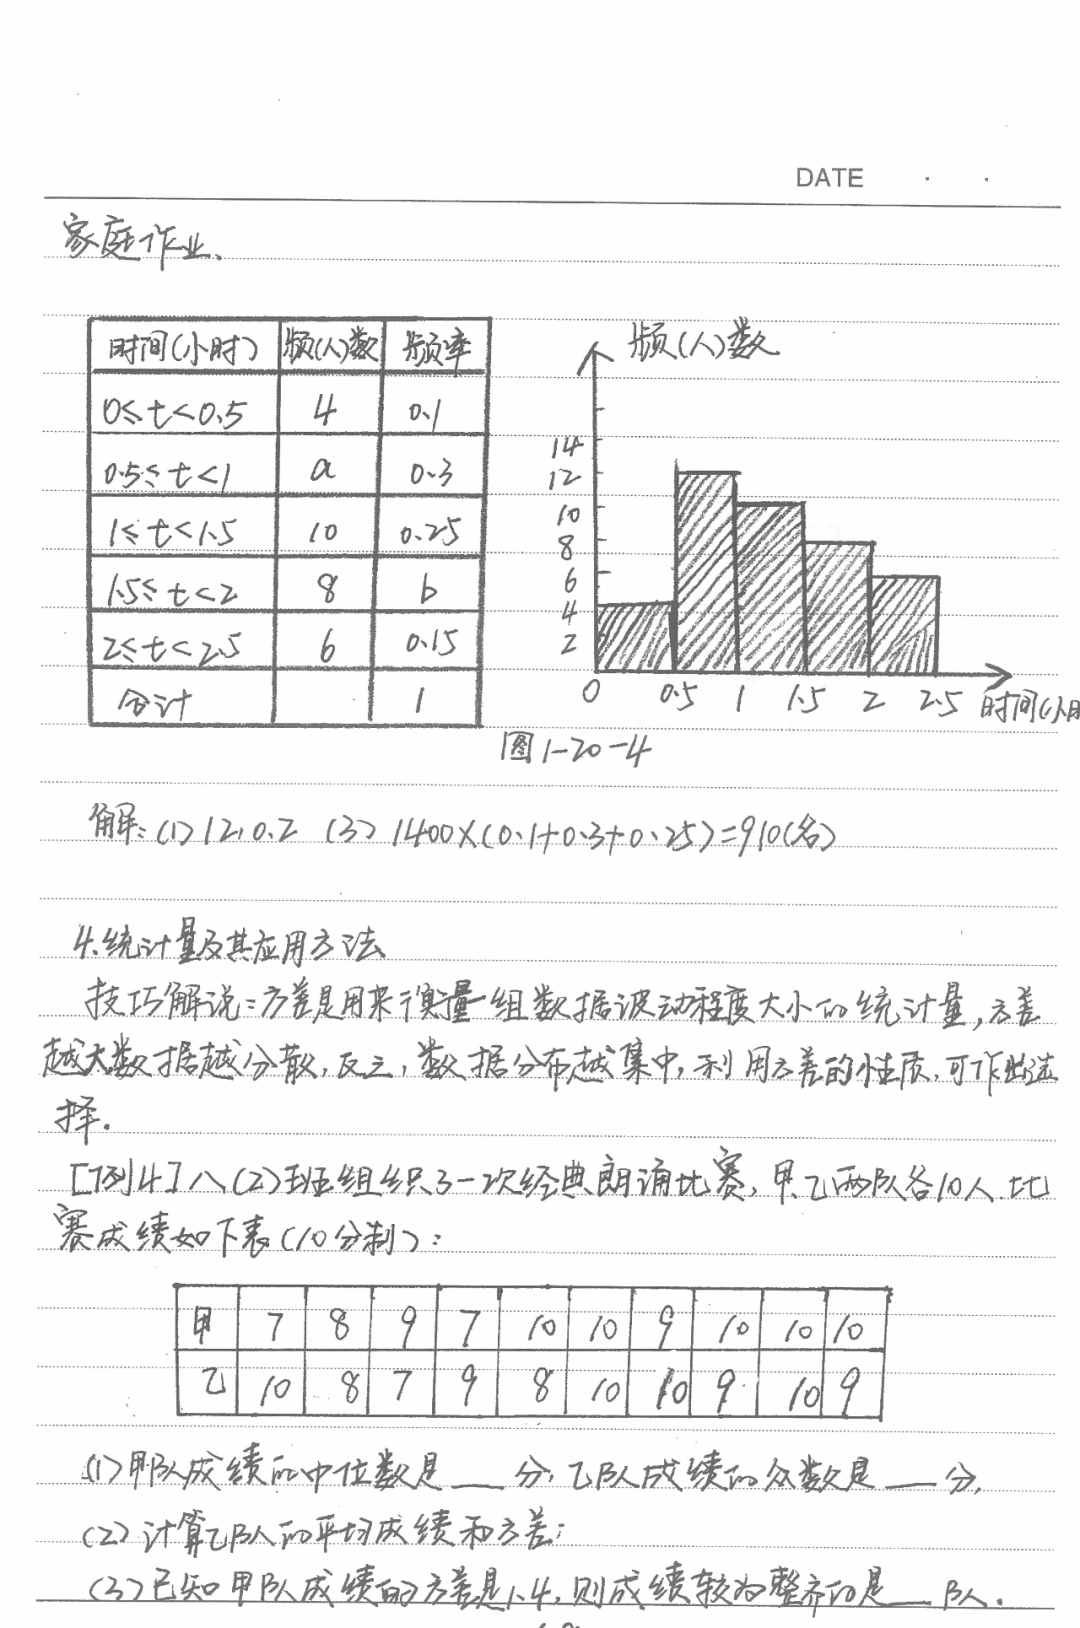 DATE
家庭作业、
时间(小时) 频(人)数 频率
0≤t<0.5 4 0.1
0.5≤t<1 a 0.3
1≤t<1.5 10 0.25
1.5≤t<2 8 b
2≤t<2.5 6 0.15
合计 1
频(人)数
14
12
10
8
6
4
2
0 0.5 1 1.5 2 2.5 时间(小时
图1-20-4
解:(1)12,0.2 (3)1400×(0.1+0.3+0.25)=910(名)
4.统计量及其应用方法
技巧解说:方差是用来衡量一组数据波动程度大小的统计量,方差
越大数据越分散,反之,数据分布越集中,利用方差的性质,可作出选
择.
[例4]八(2)班组织了一次经典朗诵比赛,甲乙两队各10人比
赛成绩如下表(10分制):
甲 7 8 9 7 10 10 9 10 10 10
乙 10 8 7 9 8 10 10 9 10 9
(1)甲队成绩的中位数是___分,乙队成绩的众数是___分,
(2)计算乙队的平均成绩和方差;
(3)已知甲队成绩的方差是1.4,则成绩较为整齐的是___队.